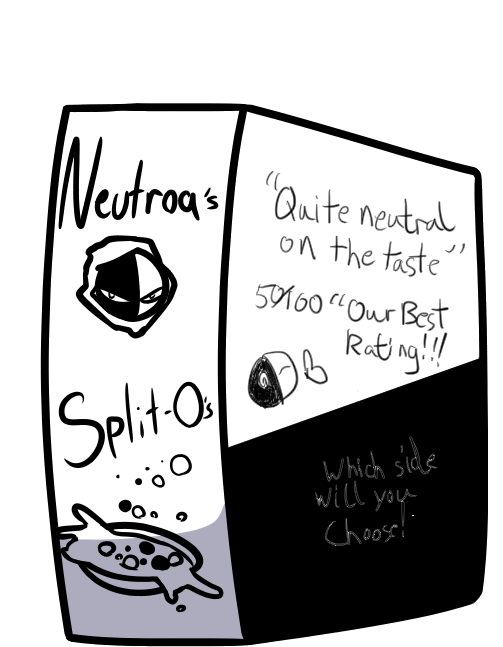 Neutroa's
Split-O's
"Quite neutral
on the taste"
50/100 "Our Best
Rating!!!
Which side
will you
Choose!